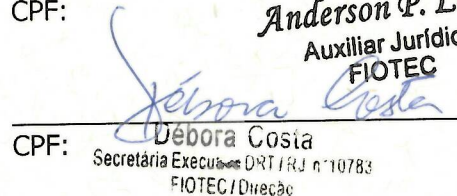 CPF:
Anderson P. L
Auxiliar Jurídic
FIOTEC
Débora Costa
CPF:
Débora Costa
Secretária Executiva DRT/RJ nº10783
FIOTEC/Direção